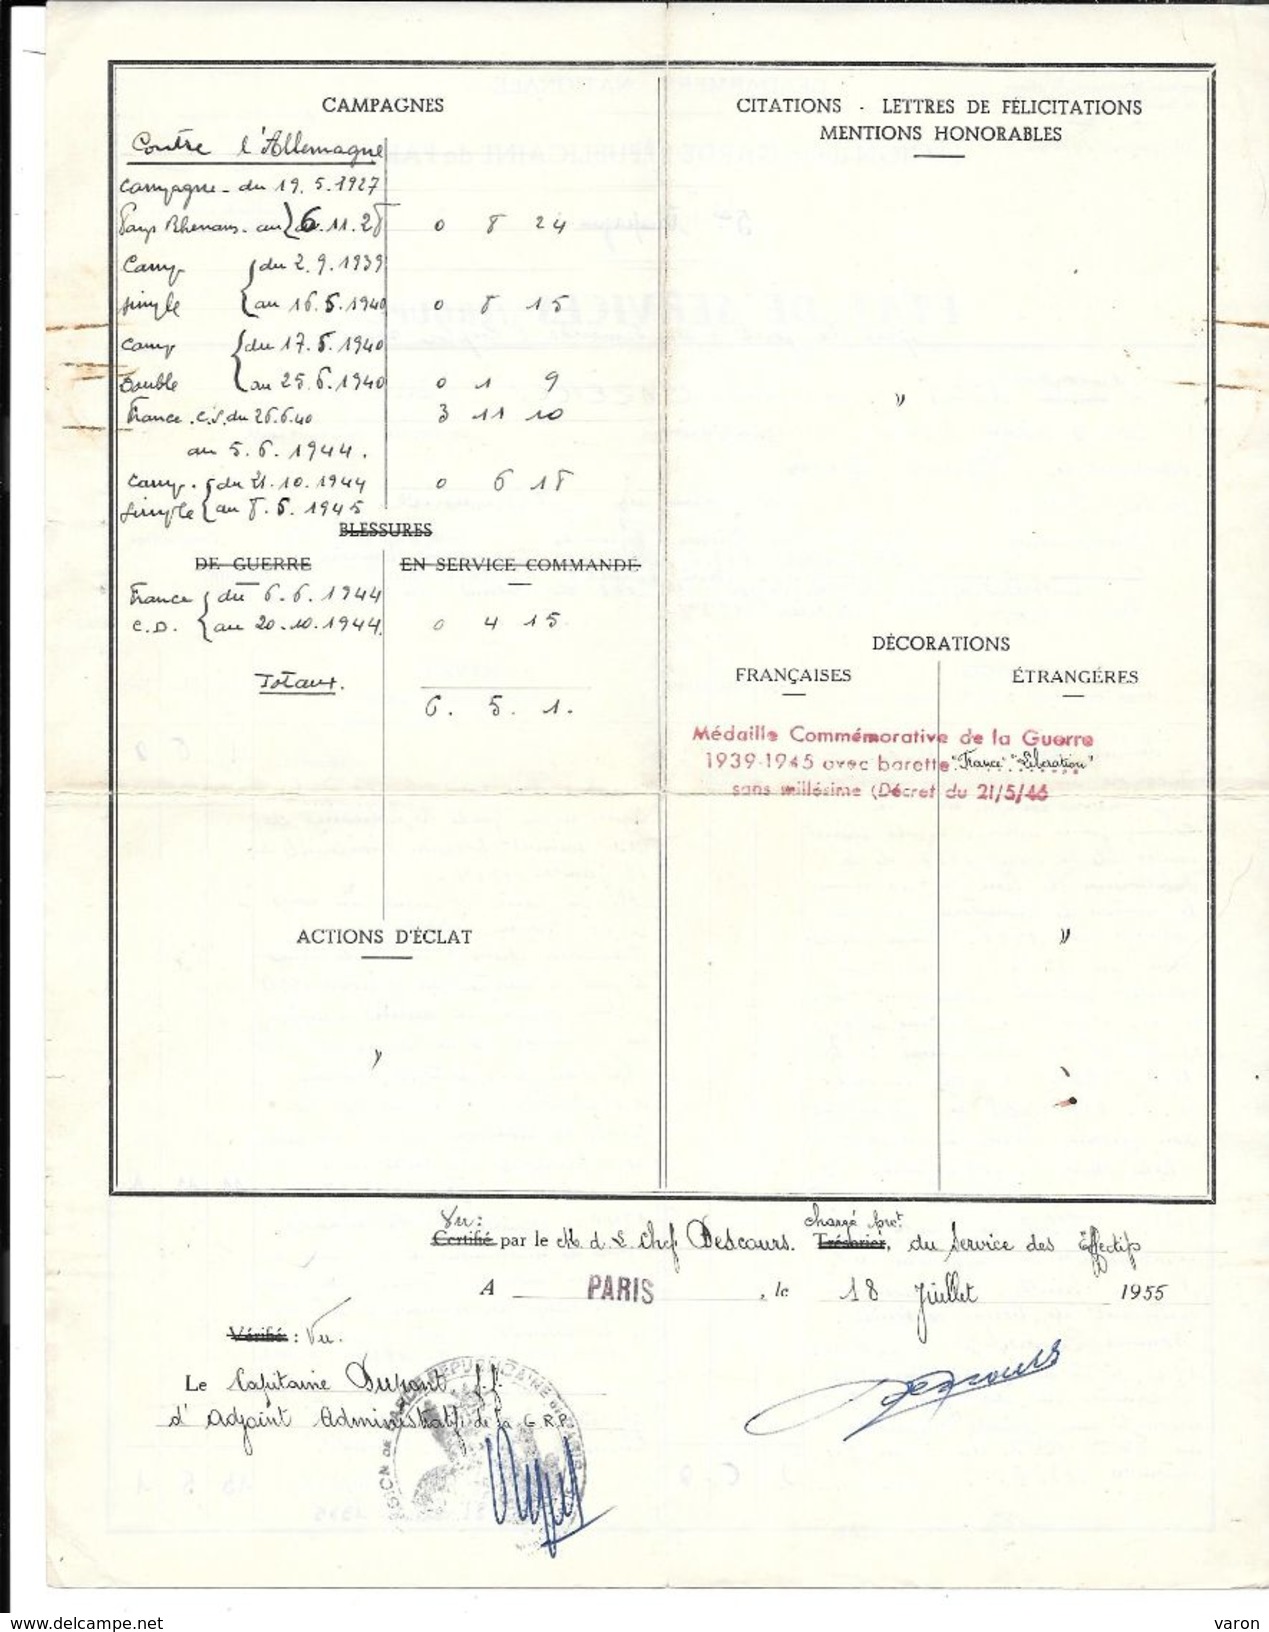 CAMPAGNES
Contre l'Allemagne
Campagne - du 19.5.1927
Pays Rhénans - au 6.11.28 0 8 24
Camp du 2.9.1939
simple au 16.5.1940 0 8 15
Camp du 17.5.1940
Double au 25.6.1940 0 1 9
France C.S. du 26.6.40 3 11 10
au 5.6.1944.
Camp. du 21.10.1944 0 6 18
simple au 8.5.1945
BLESSURES
DE GUERRE EN SERVICE COMMANDÉ
France du 6.6.1944
C.D. au 20.10.1944 0 4 15
Totaux. 6. 5. 1.
ACTIONS D'ÉCLAT
"
CITATIONS - LETTRES DE FÉLICITATIONS
MENTIONS HONORABLES
"
DÉCORATIONS
FRANÇAISES ÉTRANGÉRES
Médaille Commémorative de la Guerre
1939-1945 avec barette "France" "Libération"
sans millésime (Décret du 21/5/46
"
Vu: chargé prct.
Certifié par le M. d. L. Chef Descours. Trésorier, du Service des Effectifs
A PARIS, le 18 Juillet 1955
Vérifié : Vu.
Le Capitaine Dupont, f.f.
d'Adjoint Administratif de la G.R.P.
Descours
LÉGION DE GARDE RÉPUBLICAINE DE PARIS
www.delcampe.net
varon